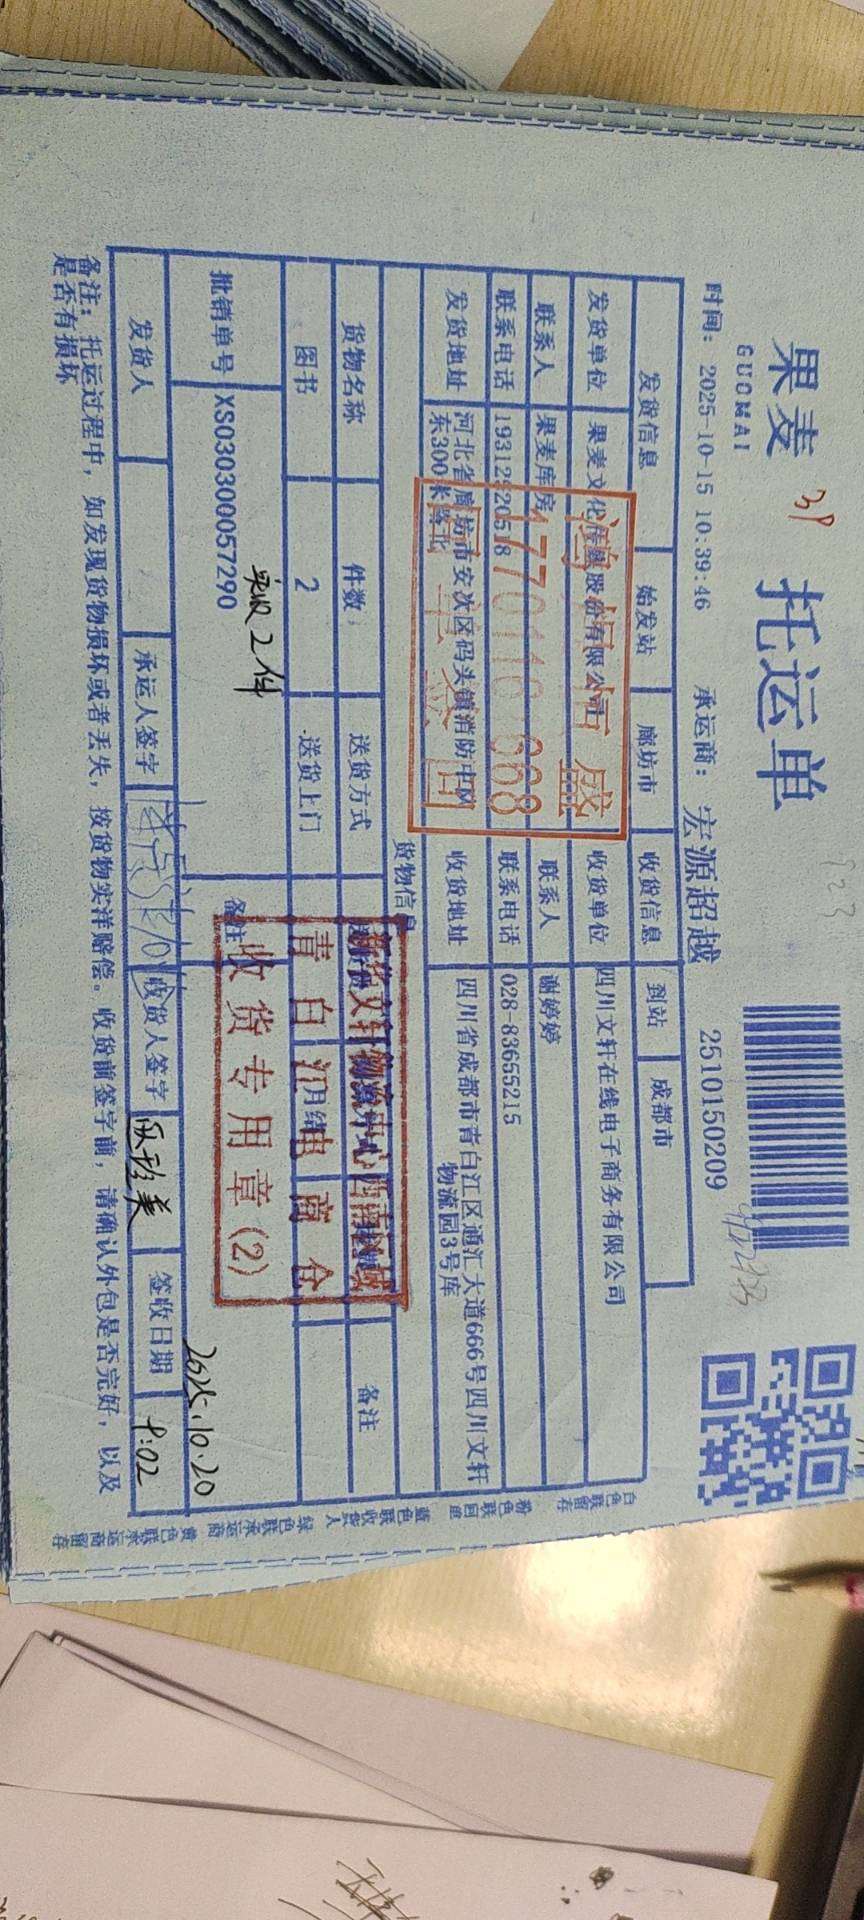 果麦
GUOMAI
托运单
时间: 2025-10-15 10:39:46 承运商: 宏源超越 2510150209
发货信息 始发站 廊坊市 收货信息 到站 成都市
发货单位 果麦文化传媒股份有限公司 收货单位 四川文轩在线电子商务有限公司
联系人 果麦库房 联系人 谢婷婷
联系电话 19312920518 联系电话 028-83655215
发货地址 河北省廊坊市安次区码头镇消防中队东300米路北 收货地址 四川省成都市青白江区通汇大道666号四川文轩物流园3号库
17701101868
货物信息
货物名称 件数: 送货方式 备注
图书 2 送货上门 月结
批销单号 XS030300057290 备注
实收2件
新华文轩物流中心西南区域
青白江电商仓
收货专用章(2)
发货人 承运人签字 收货人签字 签收日期
2025.10.20
9:02
备注: 托运过程中, 如发现货物损坏或者丢失, 按货物实洋赔偿。收货前签字前, 请确认外包是否完好, 以及
是否有损坏
白色联留存 粉色联回单 蓝色联收货人 绿色联承运商 黄色联承运商留存